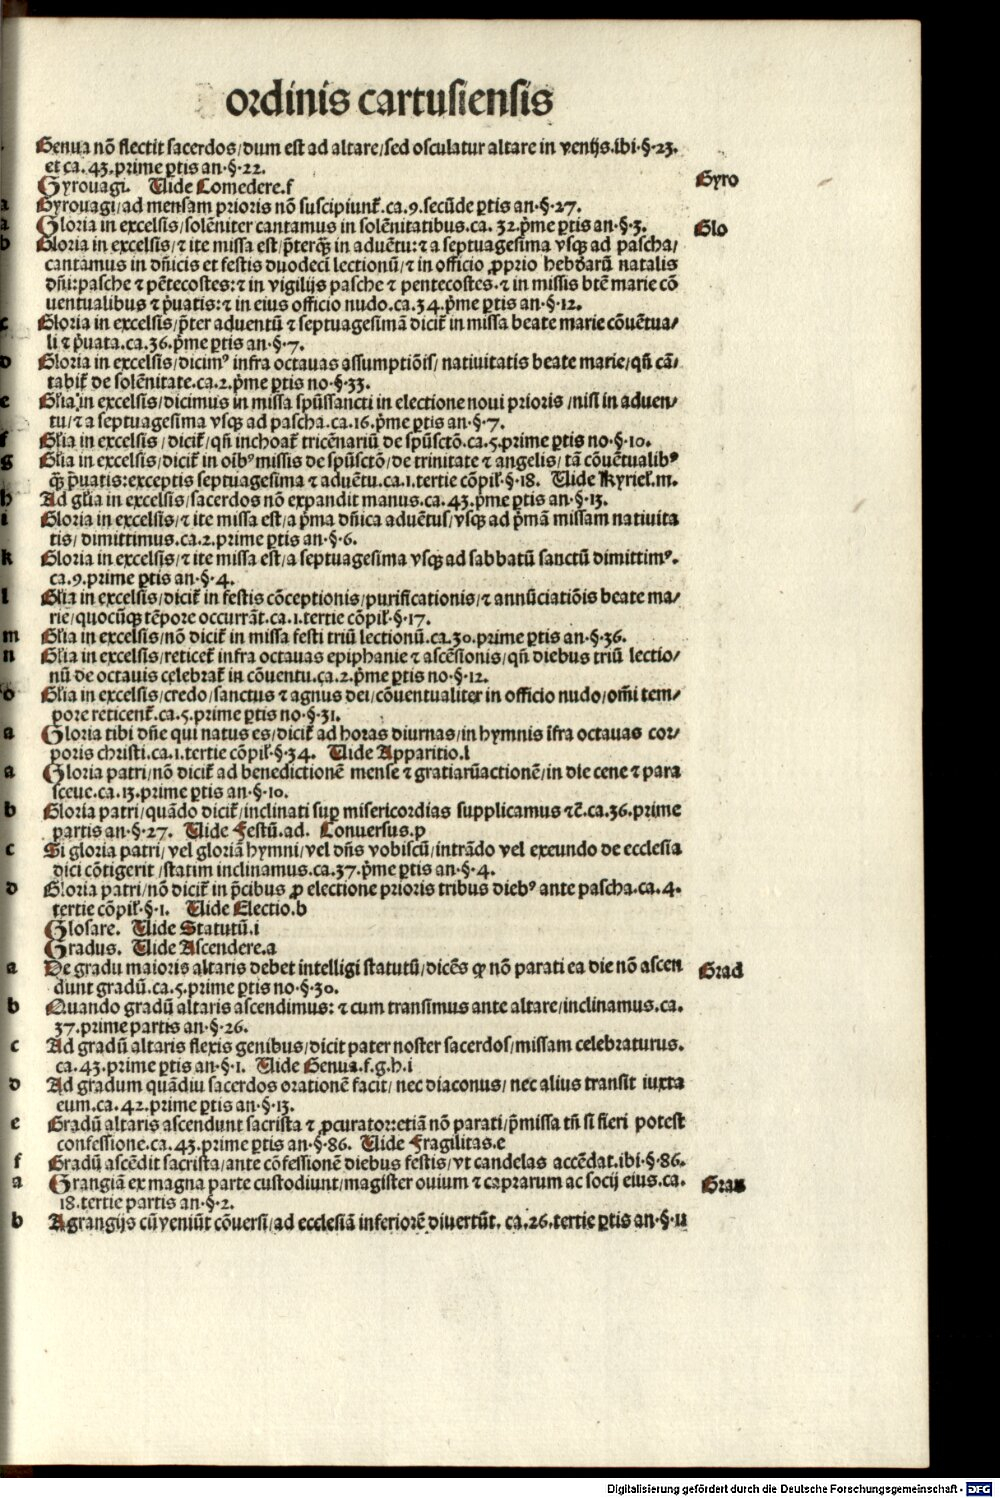 ordinis cartusiensis
Genua nõ flectit sacerdos/dum est ad altare/sed osculatur altare in venijs.ibi.§.23.
et ca.43.prime ꝑtis an.§.22.
Gyrouagi. Vide Comedere.f
Gyro
a Gyrouagi/ad mensam prioris nõ suscipiunt᷑.ca.9.secũde ꝑtis an.§.27.
a Gloria in excelsis/solẽniter cantamus in solẽnitatibus.ca.32.p̃me ꝑtis an.§.3.
Glo
b Gloria in excelsis/⁊ ite missa est/p̃terq̃ꝫ in aduẽtu:⁊ a septuagesima vsqꝫ ad pascha/
cantamus in dñicis et festis duodeci lectionũ/⁊ in officio ꝓprio hebdarũ natalis
dñi:pasche ⁊ pẽtecostes:⁊ in vigilijs pasche ⁊ pentecostes.⁊ in missis btẽ marie cõ
uentualibus ⁊ p̃uatis:⁊ in eius officio nudo.ca.34.p̃me ꝑtis an.§.12.
c Gloria in excelsis/p̃ter aduentũ ⁊ septuagesimã dicit᷑ in missa beate marie cõuẽtua/
li ⁊ p̃uata.ca.36.p̃me ꝑtis an.§.7.
d Gloria in excelsis/dicimꝰ infra octauas assumptiõis/natiuitatis beate marie/qñ cã/
tabit᷑ de solẽnitate.ca.2.p̃me ꝑtis no.§.33.
e Glia in excelsis/dicimus in missa spũssancti in electione noui prioris/nisi in aduen/
tu/⁊ a septuagesima vsqꝫ ad pascha.ca.16.p̃me ꝑtis an.§.7.
f Glia in excelsis/dicit᷑/qñ inchoat᷑ tricẽnariũ de spũsctõ.ca.5.prime ꝑtis no.§.10.
g Glia in excelsis/dicit᷑ in oĩbꝰ missis de spũsctõ/de trinitate ⁊ angelis/tã cõuẽtualibꝰ
q̃ꝫ p̃uatis:exceptis septuagesima ⁊ aduẽtu.ca.1.tertie cõpil᷑.§.18. Vide Kyriel᷑.m.
h Ad glia in excelsis/sacerdos nõ expandit manus.ca.43.p̃me ꝑtis an.§.13.
i Gloria in excelsis/⁊ ite missa est/a p̃ma dñica aduẽtus/vsqꝫ ad p̃mã missam natiuita
tis/dimittimus.ca.2.prime ꝑtis an.§.6.
k Gloria in excelsis/⁊ ite missa est/a septuagesima vsqꝫ ad sabbatũ sanctũ dimittimꝰ.
ca.9.prime ꝑtis an.§.4.
l Glia in excelsis/dicit᷑ in festis cõceptionis/purificationis/⁊ annũciatiõis beate ma/
rie/quocũqꝫ tẽpore occurrãt.ca.1.tertie cõpil᷑.§.17.
m Glia in excelsis/nõ dicit᷑ in missa festi triũ lectionũ.ca.30.prime ꝑtis an.§.36.
n Glia in excelsis/reticet᷑ infra octauas epiphanie ⁊ ascẽsionis/qñ diebus triũ lectio/
nũ de octauis celebrat᷑ in cõuentu.ca.2.p̃me ꝑtis no.§.12.
o Glia in excelsis/credo/sanctus ⁊ agnus dei/cõuentualiter in officio nudo/om̃i tem/
pore reticent᷑.ca.5.prime ꝑtis no.§.31.
a Gloria tibi dñe qui natus es/dicit᷑ ad horas diurnas/in hymnis ĩfra octauas cor/
poris christi.ca.1.tertie cõpil᷑.§.34. Vide Apparitio.l
a Gloria patri/nõ dicit᷑ ad benedictionẽ mense ⁊ gratiarũactionẽ/in die cene ⁊ para
sceue.ca.13.prime ꝑtis an.§.10.
b Gloria patri/quãdo dicit᷑/inclinati sup̱ misericordias supplicamus ⁊c̃.ca.36.prime
partis an.§.27. Vide Festũ.ad. Conuersus.p
c Si gloria patri/vel gloriã hymni/vel dñs vobiscũ/intrãdo vel exeundo de ecclesia
dici cõtigerit/statim inclinamus.ca.37.p̃me ꝑtis an.§.4.
d Gloria patri/nõ dicit᷑ in p̃cibus ꝓ electione prioris tribus diebꝰ ante pascha.ca.4.
tertie cõpil᷑.§.1. Vide Electio.b
Glosare. Vide Statutũ.i
Gradus. Vide Ascendere.a
a De gradu maioris altaris debet intelligi statutũ/dicẽs ꝙ nõ parati ea die nõ ascen
dunt gradũ.ca.5.prime ꝑtis no.§.30.
Grad
b Quando gradũ altaris ascendimus:⁊ cum transimus ante altare/inclinamus.ca.
37.prime partis an.§.26.
c Ad gradũ altaris flexis genibus/dicit pater noster sacerdos/missam celebraturus.
ca.43.prime ꝑtis an.§.1. Vide Genua.f.g.h.i
d Ad gradum quãdiu sacerdos orationẽ facit/nec diaconus/nec alius transit iuxta
eum.ca.42.prime ꝑtis an.§.13.
e Gradũ altaris ascendunt sacrista ⁊ ꝓcurator:etiã nõ parati/p̃missa tñ si fieri potest
confessione.ca.43.prime ꝑtis an.§.86. Vide Fragilitas.e
f Gradũ ascẽdit sacrista/ante cõfessionẽ diebus festis/vt candelas accẽdat.ibi.§.86.
a Grangiã ex magna parte custodiunt/magister ouium ⁊ caprarum ac socij eius.ca.
18.tertie partis an.§.2.
Gran
b A grangijs cũ veniũt cõuersi/ad ecclesiã inferiorẽ diuertũt.ca.26.tertie ꝑtis an.§.11
Digitalisierung gefördert durch die Deutsche Forschungsgemeinschaft - DFG